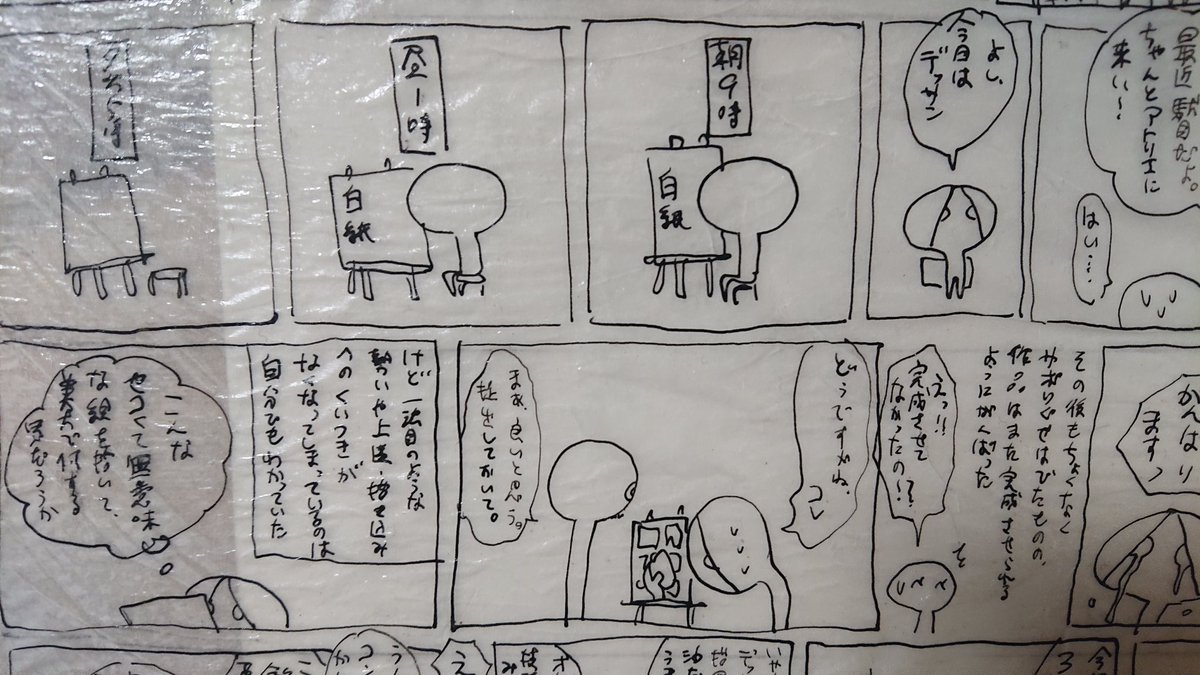 最近駄目だよ。
ちゃんとアトリエに
来い〜
はい…
よし、
今日は
デッサン
朝9時
白紙
昼1時
白紙
がんばり
ますっ
その後もちょくちょく
やぎりぐせはびたものの、
作品はまた完成させられる
ようにがんばった
えっ!!
完成させて
なかったの〜!?
どうですかね、
コレ
まぁ、良いと思う。
提出してかいて。
けど一浪目のような
勢いや上達・描き込み
へのくいつきが
なくなってしまっているのは
自分でもわかっていた
こんな
せコくて無意味
な絵を描いて、
美大で何する
気だろうか